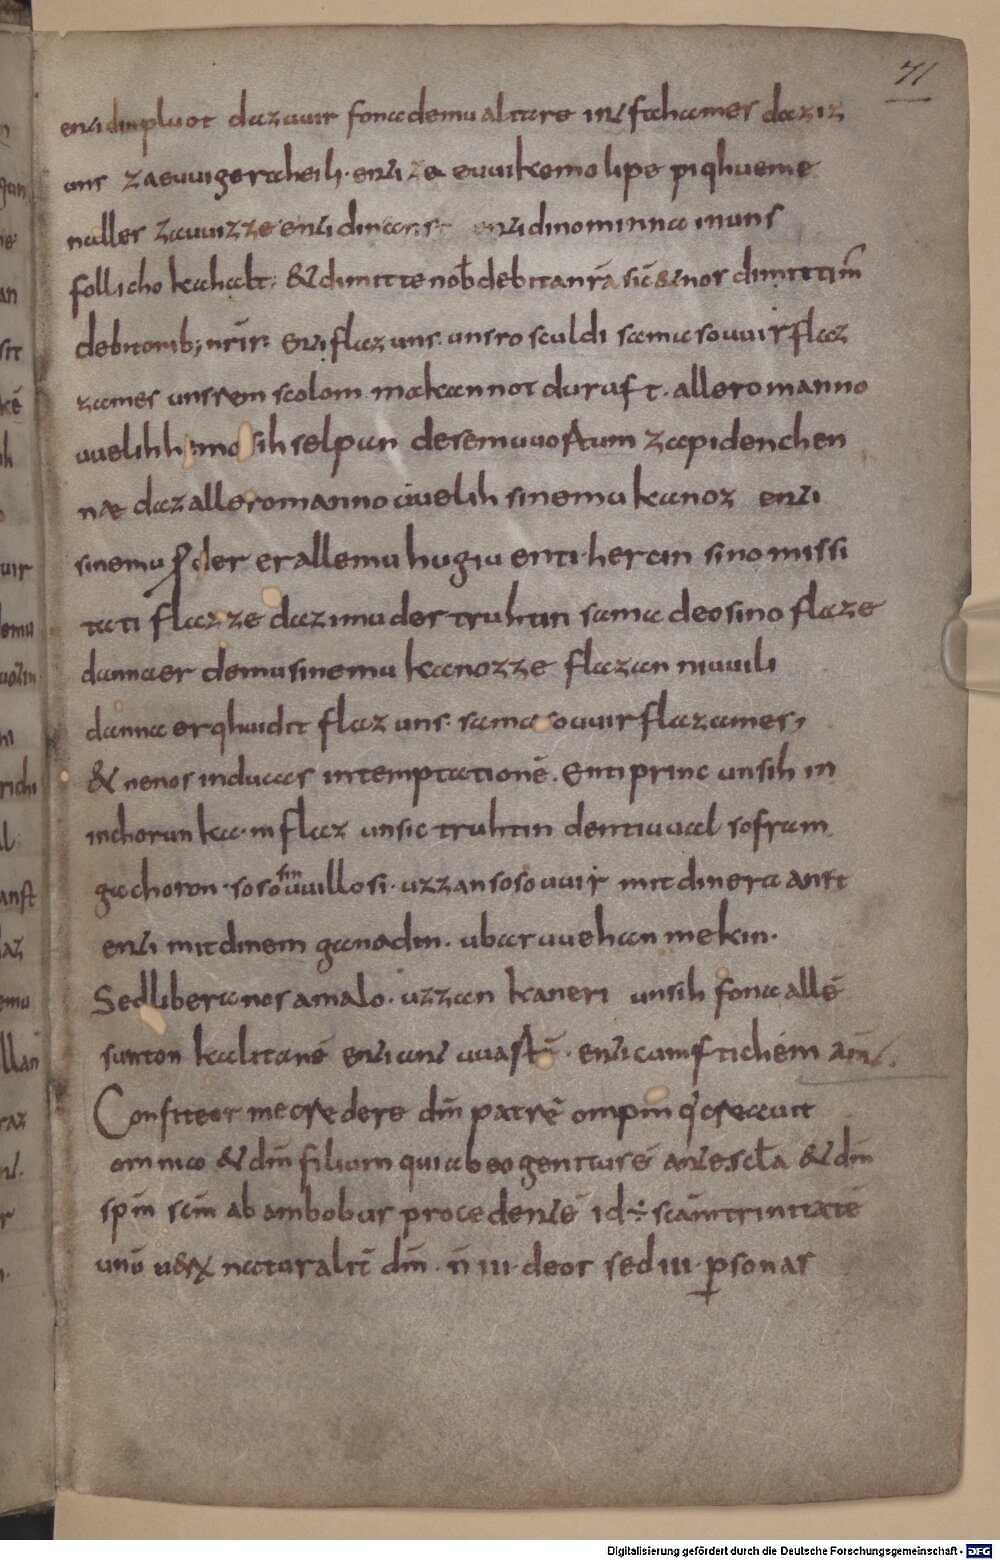 71
enti din pluot daz uuir fona demu altare intfahames daz iz
uns za euuigera heili · enti za euuikemo lipe piqhueme
nalles za uuizze enti dina anst enti dino minna in uns
follicho kahalt: & dimitte nob̄ debita nr̄a sic̄ & nos dimittim̄
debitorib; nr̄is: enti flaz uns unsro sculdi sama so uuir flaz
zames unsrem scolom makannot duruft · allero manno
uuelihhemo sih selpan desemu uuortum za pidenchen
nae daz allero manno uuelih sinemu kanoz enti
sinemu p̱oder er allemu hugiu enti herain sino missi
tati flazze daz imu der truhtin sama deo sino flaze
danna er demu sinemu kanozze flazan ni uuili
danna er qhuidit flaz uns sama so uuir flazames,
& ne nos inducas in temptationē. Enti princ unsih in
in chorunka · ni flaz unsic truhtin den tiuual so fram
ga choron · soso sin uuillo si · uzzan soso uuir mit dinera anst
enti mit dinem ganadin · ubar uuehan mekin ·
Sed libera nos a malo · uzzan kaneri unsih fona allē
sunton kalitanē enti antuuartē · enti cumftichēm am̄.
Confiteor me credere dm̄ patrē ompm̄ q' creauit
omnia & dm̄ filium qui ab eo genitus ē ante sc̄la & dm̄
spm̄ scm̄ ab ambobus procedentē id ÷ scām trinitatē
unū uerx naturalit̄ dm̄ · n̄ III · deos sed III · p̱sonas
Digitalisierung gefördert durch die Deutsche Forschungsgemeinschaft - DFG